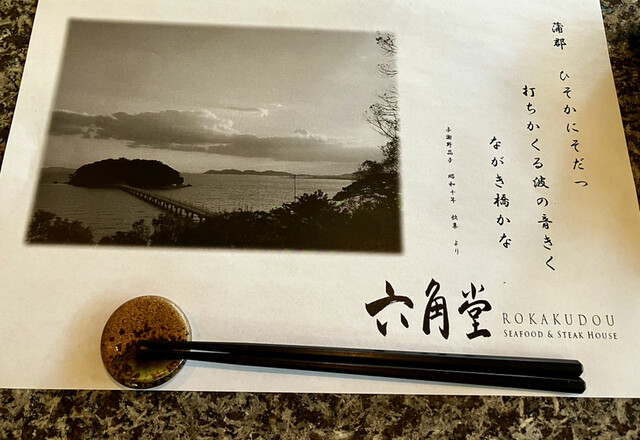 蒲郡　ひそかにそだつ
打ちかくる波の音きく
ながき橋かな
与謝野晶子　昭和十年　歌集　より
六角堂
ROKAKUDOU
SEAFOOD & STEAK HOUSE